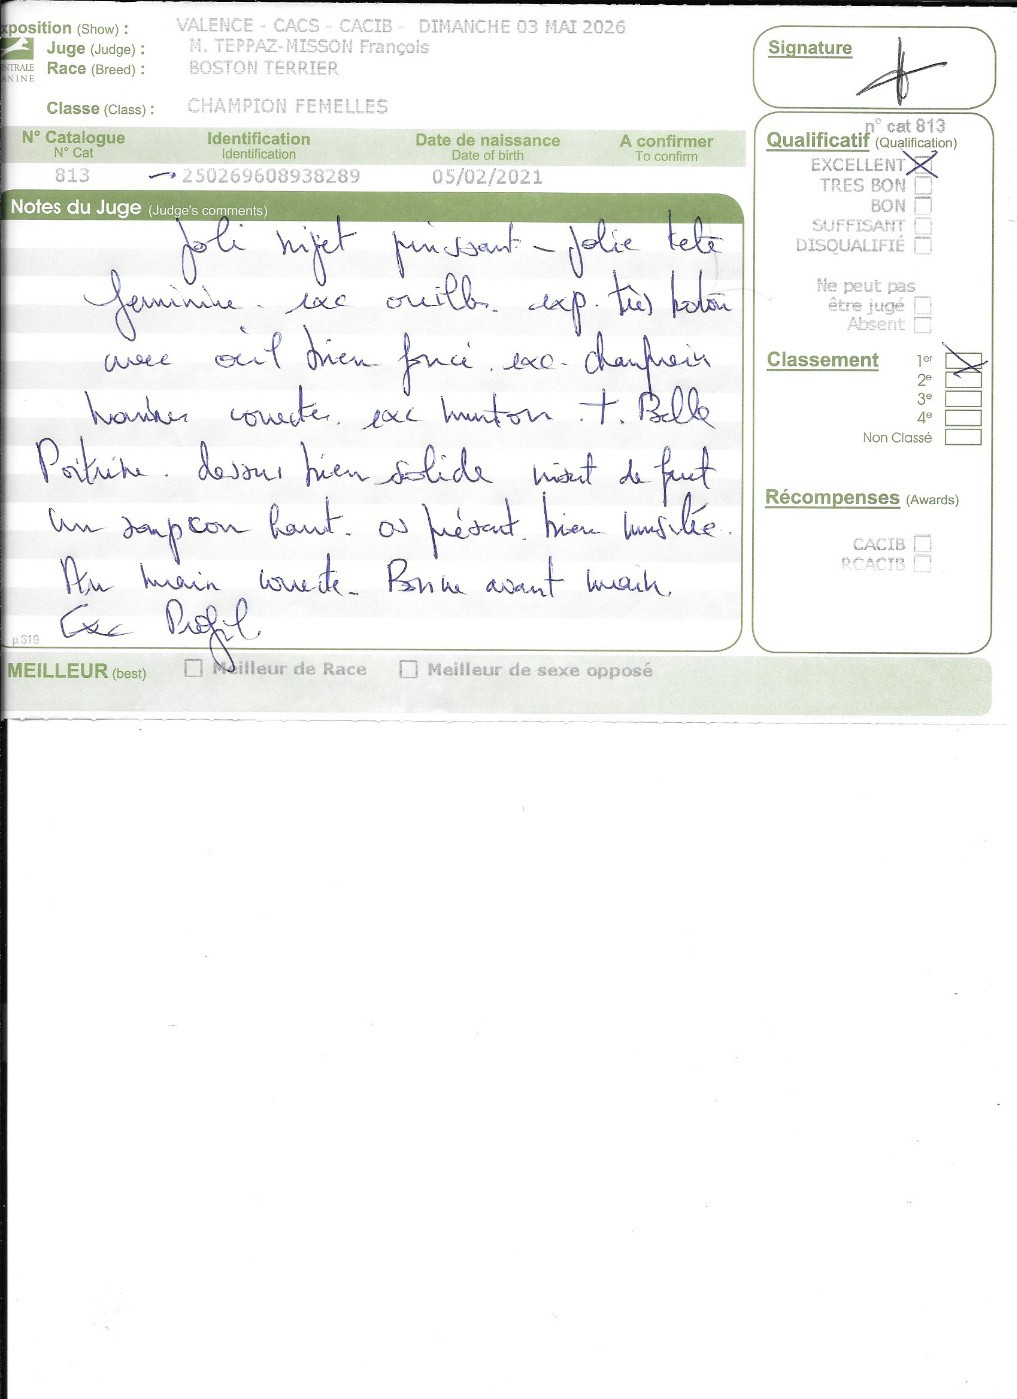 xposition (Show) : VALENCE - CACS - CACIB - DIMANCHE 03 MAI 2026
Juge (Judge) : M. TEPPAZ-MISSON François
Race (Breed) : BOSTON TERRIER
NTRALE
ANINE
Classe (Class) : CHAMPION FEMELLES
Signature
N° Catalogue Identification Date de naissance A confirmer
N° Cat Identification Date of birth To confirm
813 250269608938289 05/02/2021
n° cat 813
Qualificatif (Qualification)
EXCELLENT
TRES BON
BON
SUFFISANT
DISQUALIFIÉ
Ne peut pas
être jugé
Absent
Classement 1er
2e
3e
4e
Non Classé
Récompenses (Awards)
CACIB
RCACIB
Notes du Juge (Judge's comments)
Joli sujet puissant - Jolie tete
feminine. exc oreilles. exp. très boston
avec œil bien foncé. exc. chanfrein
correctes. exc menton. t. Belle
Poitrine. dessus bien solide fouet
un soupcon haut. os présent. bien musclée.
main correcte. Bonne avant main.
Exc Profil.
p.518
MEILLEUR (best) Meilleur de Race Meilleur de sexe opposé